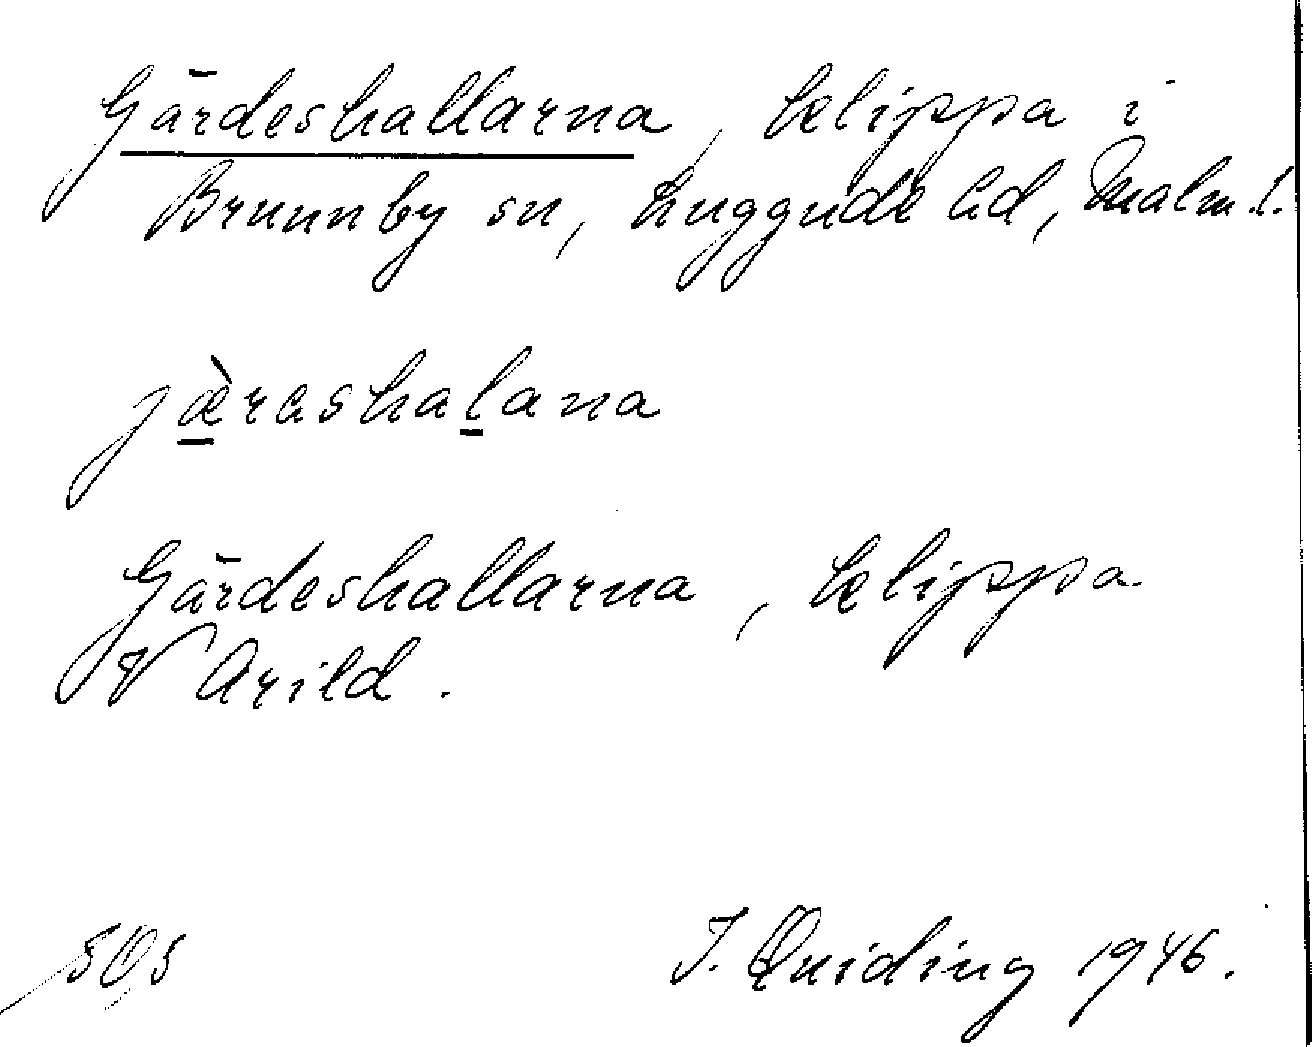 Gärdeshallarna, klippa i
Brunnby sn, Luggude hd, Malm.l.
jæ̀rashalana
Gärdeshallarna, klippa
V Arild.
505
I. Quiding 1946.